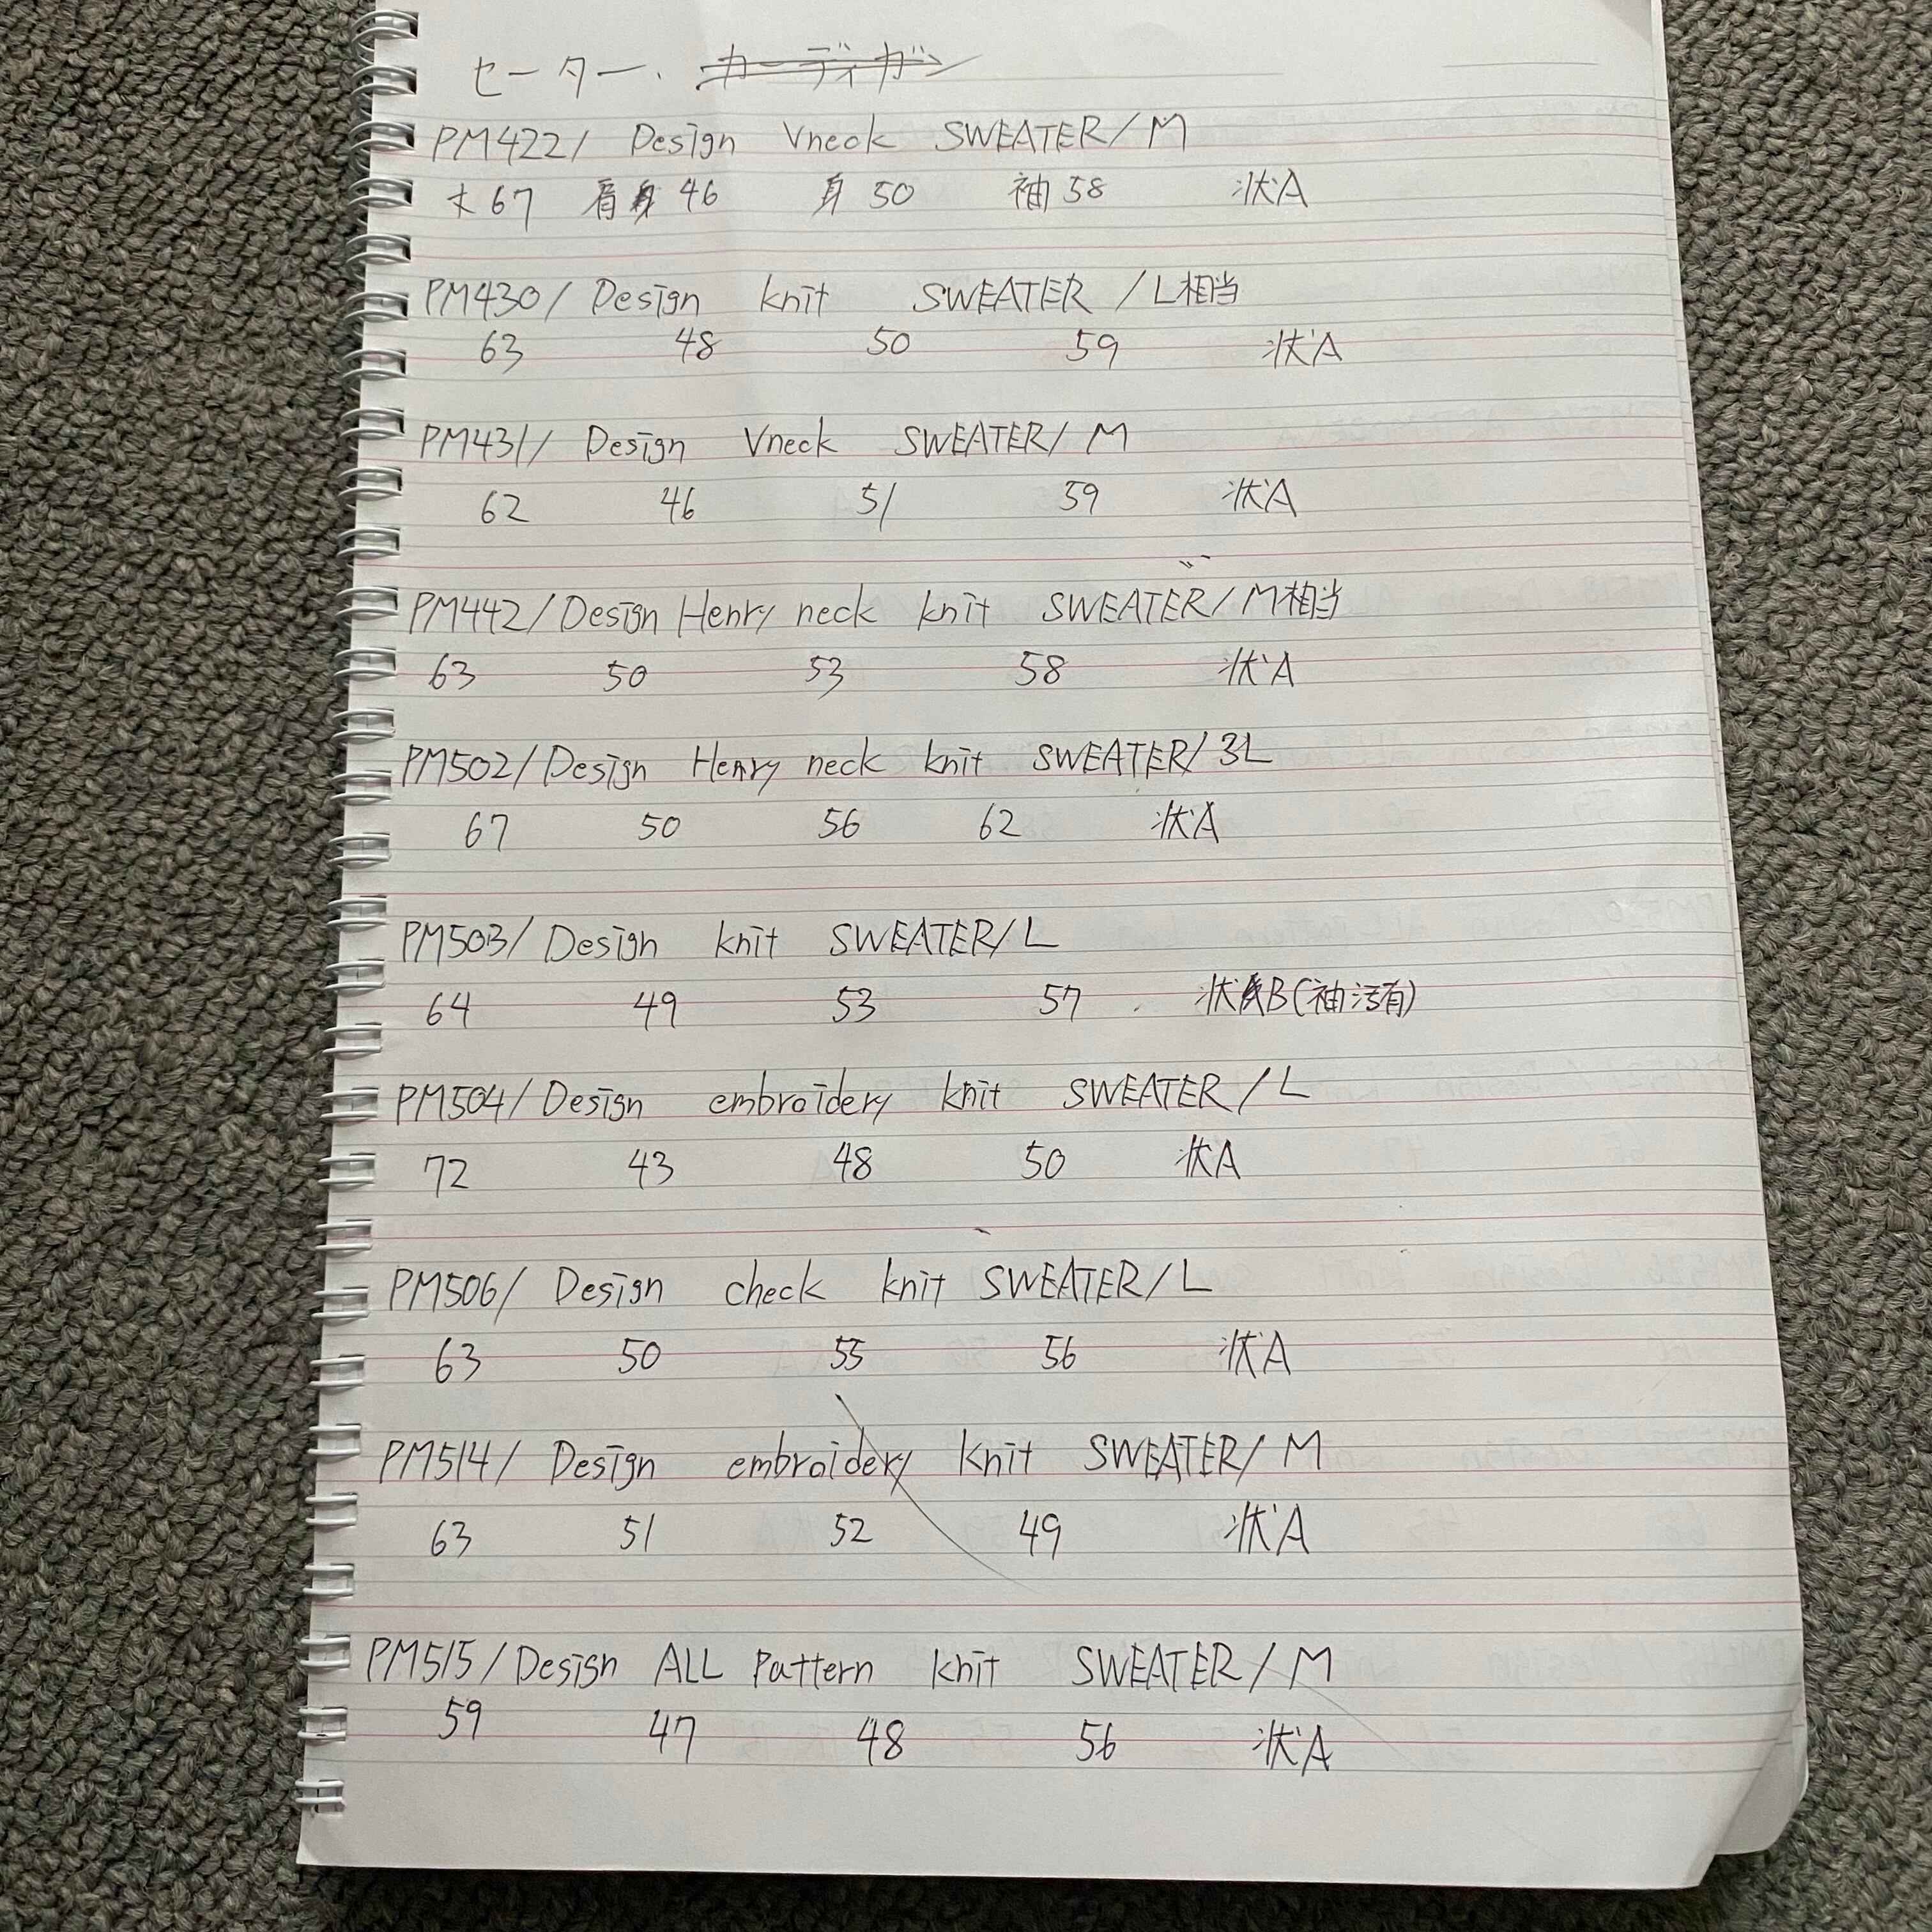 セーター. カーディガン
PM422/ Design Vneck SWEATER/M
丈67 肩 46 身 50 袖 58 状A
PM430/ Design knit SWEATER /L相当
63 48 50 59 状A
PM431/ Design Vneck SWEATER/ M
62 46 51 59 状A
PM442/Design Henry neck knit SWEATER/M相当
63 50 53 58 状A
PM502/Design Henry neck knit SWEATER/3L
67 50 56 62 状A
PM503/Design knit SWEATER/L
64 49 53 57 状B(袖汚有)
PM504/Design embroidery knit SWEATER/L
72 43 48 50 状A
PM506/ Design check knit SWEATER/L
63 50 55 56 状A
PM514/ Design embroidery knit SWEATER/ M
63 51 52 49 状A
PM515/Design ALL Pattern knit SWEATER/M
59 47 48 56 状A